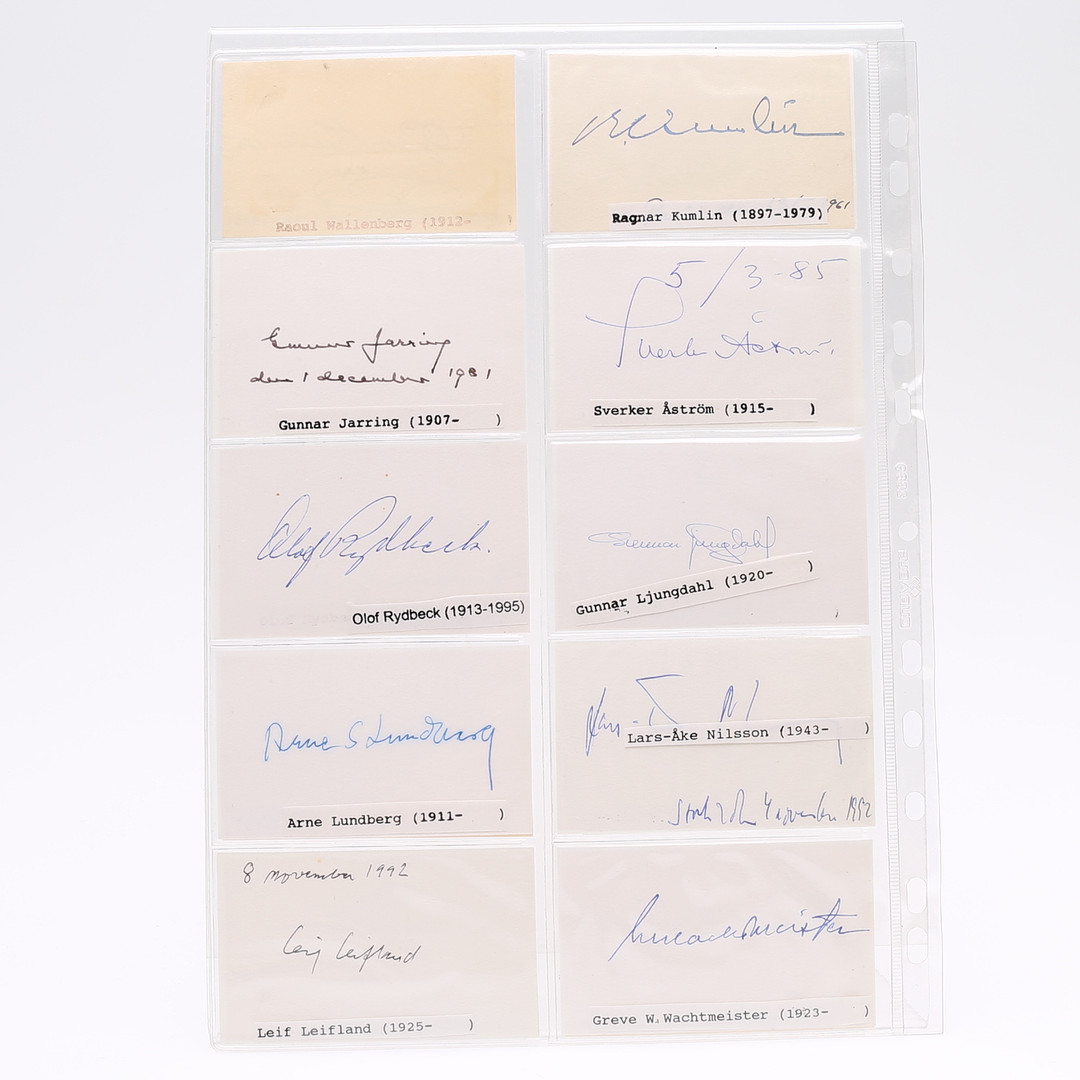 Raoul Wallenberg (1912- )
R Kumlin
1961
Ragnar Kumlin (1897-1979)
Gunnar Jarring
den 1 december 1981
Gunnar Jarring (1907- )
5/3-85
Sverker Åström
Sverker Åström (1915- )
Olof Rydbeck.
Olof Rydbeck (1913-1995)
Gunnar Ljungdahl
Gunnar Ljungdahl (1920- )
Arne S Lundberg
Arne Lundberg (1911- )
Lars-Åke Nilsson (1943- )
4 november 1992
8 november 1992
Leif Leifland
Leif Leifland (1925- )
Wachtmeister
Greve W. Wachtmeister (1923- )